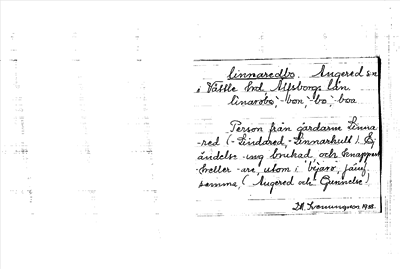 Linnaredbo. Angered sn
i Vättle hd Älfsborgs län.
linarobo, -bon, -bo, -boa
Person från gårdarne Linna-
red (-Lindared, -Linnarhult). Ej
ändelse -ing brukad och knappast
heller -are, utom i byjare,
samma, (Angered och Gunnilse)